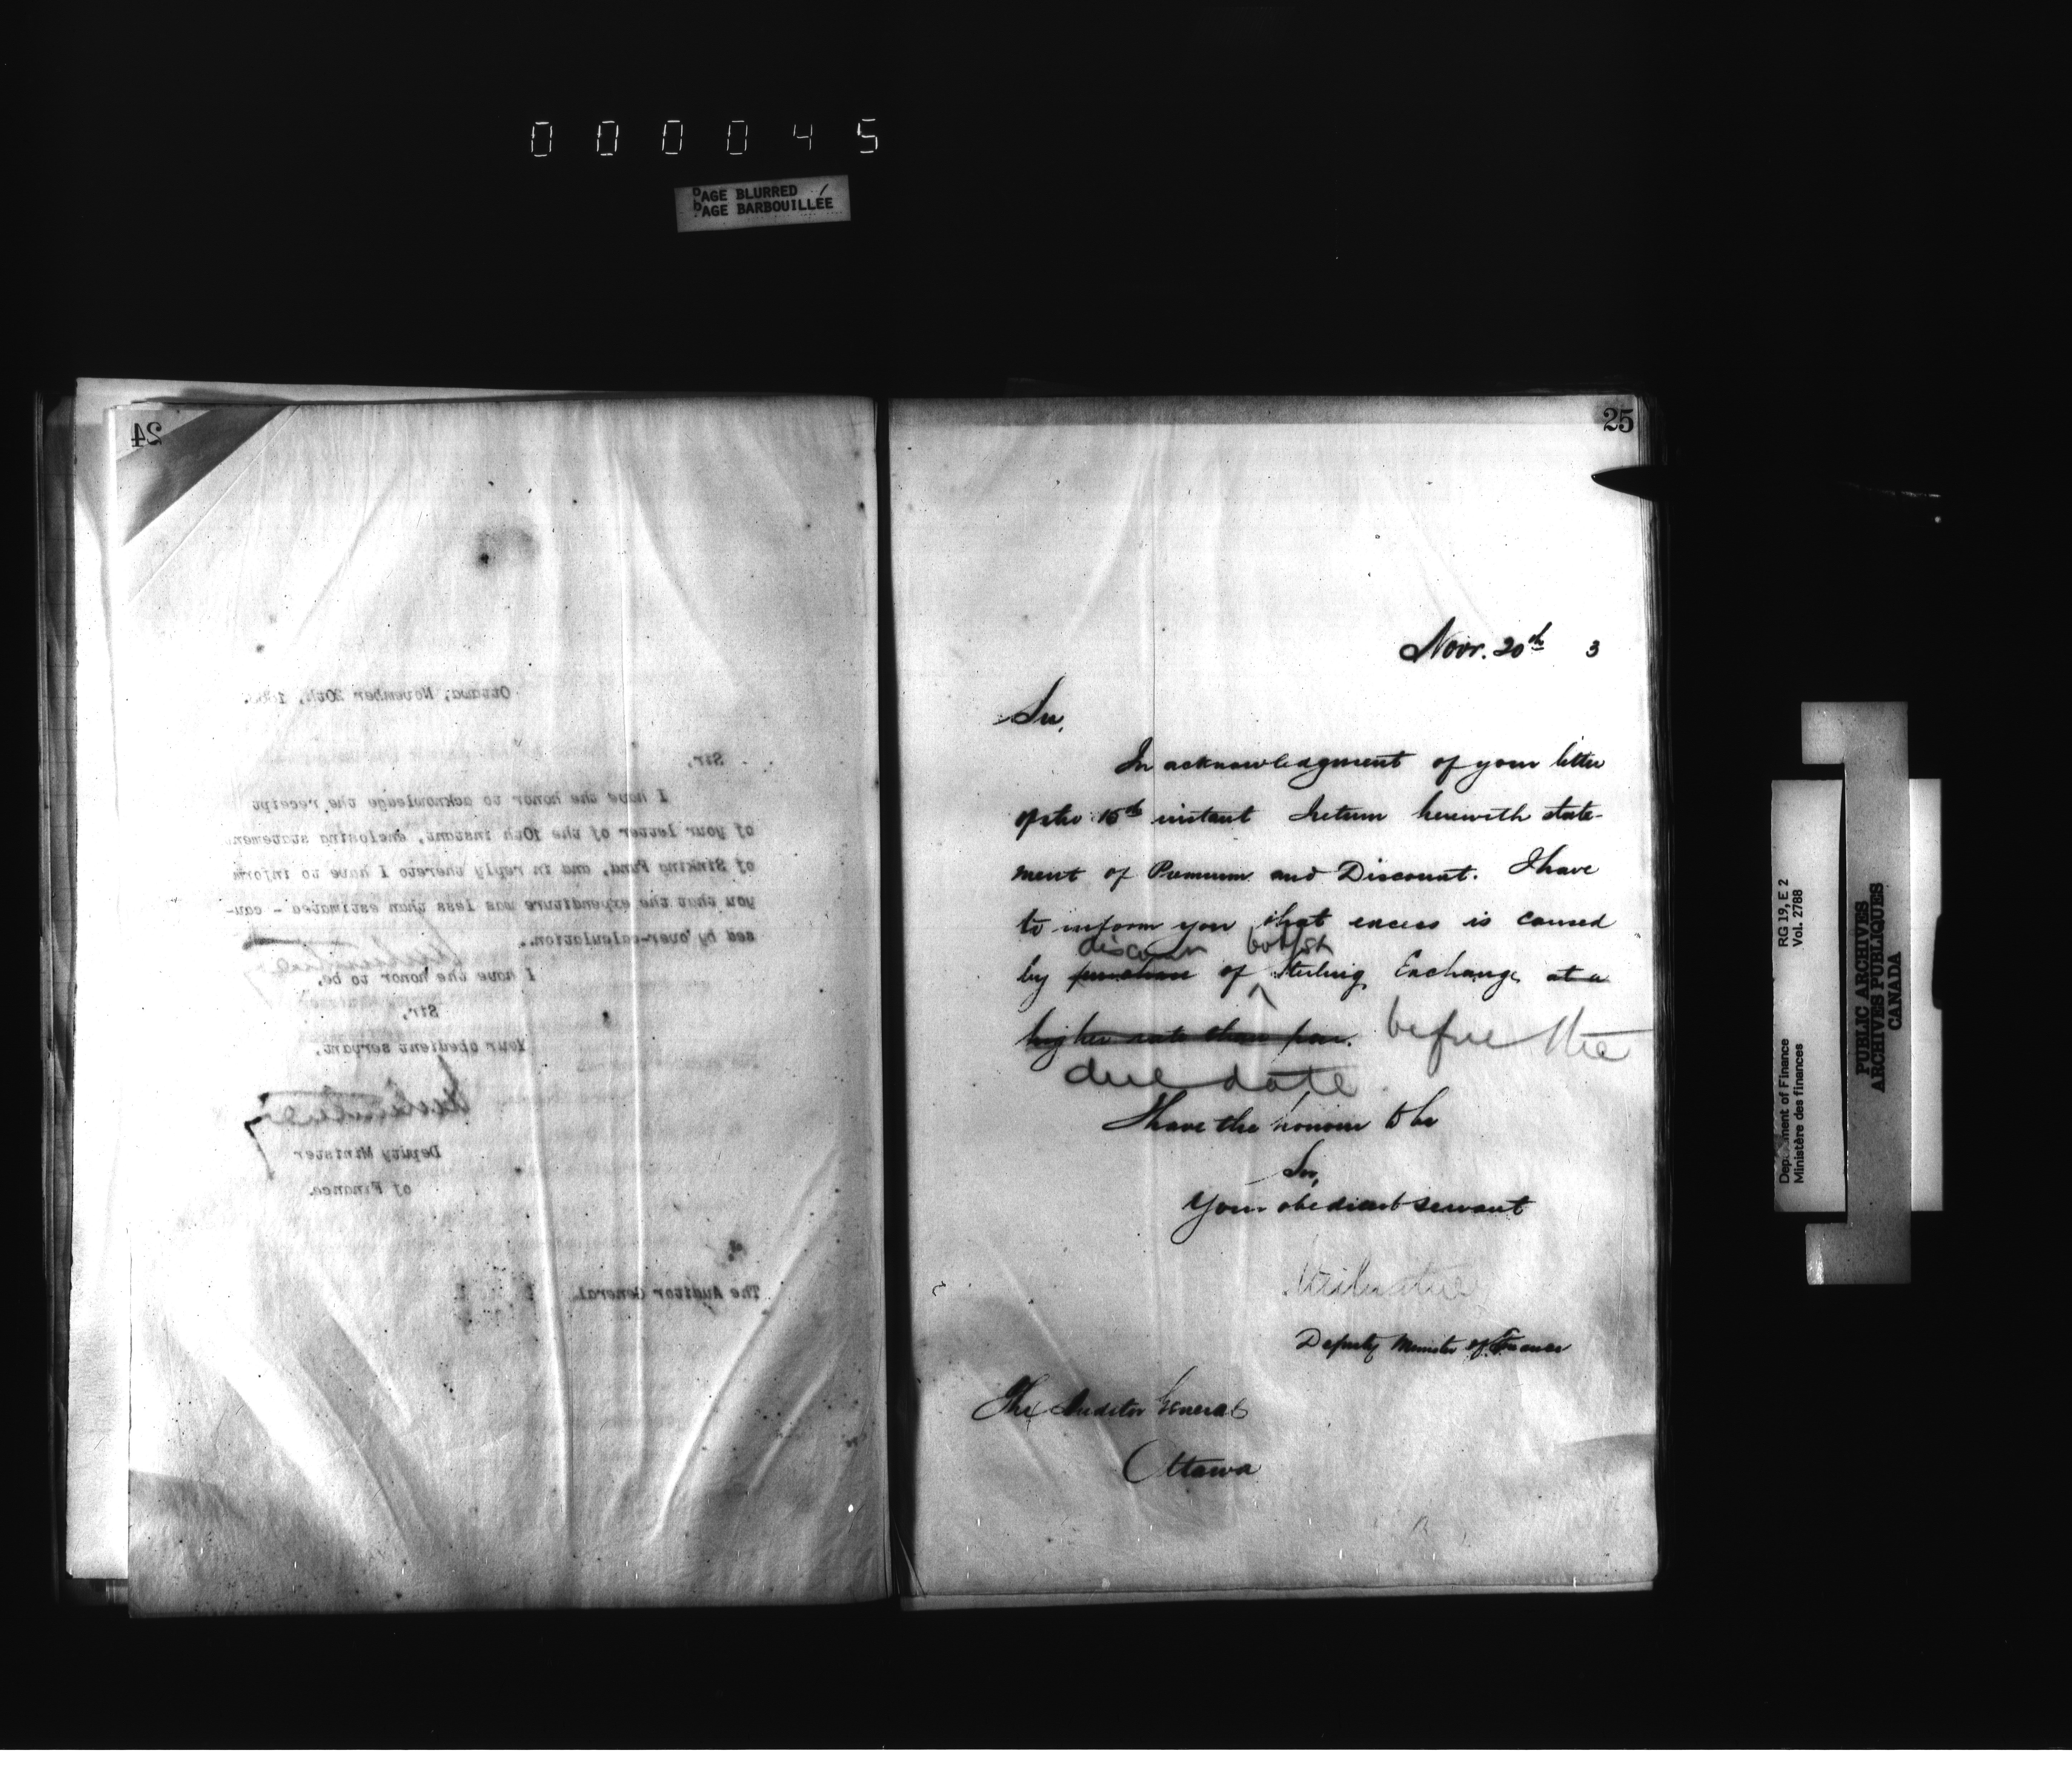 000045
PAGE BLURRED
PAGE BARBOUILLÉE
24
Ottawa, November 20th, 188
Sir,
I have the honor to acknowledge the receipt
of your letter of the 10th instant, enclosing statement
of Sinking Fund, and in reply thereto I have to inform
you that the expenditure was less than estimated - cau-
sed by over-calculation.
I have the honor to be,
Sir,
Your obedient servant,
Deputy Minister
of Finance.
The Auditor General.
25
Novr. 20th 3
Sir,
In acknowledgment of your letter
of the 15th instant I return herewith state-
ment of Premium and Discount. I have
to inform you that excess is caused
discount bought
by purchase of Sterling Exchange at a
higher rate than par. before the
due date
I have the honour to be
Sir,
Your obedient servant
Deputy Minister of Finance
The Auditor General
Ottawa
Department of Finance
Ministère des finances
RG 19, E 2
Vol. 2788
PUBLIC ARCHIVES
ARCHIVES PUBLIQUES
CANADA